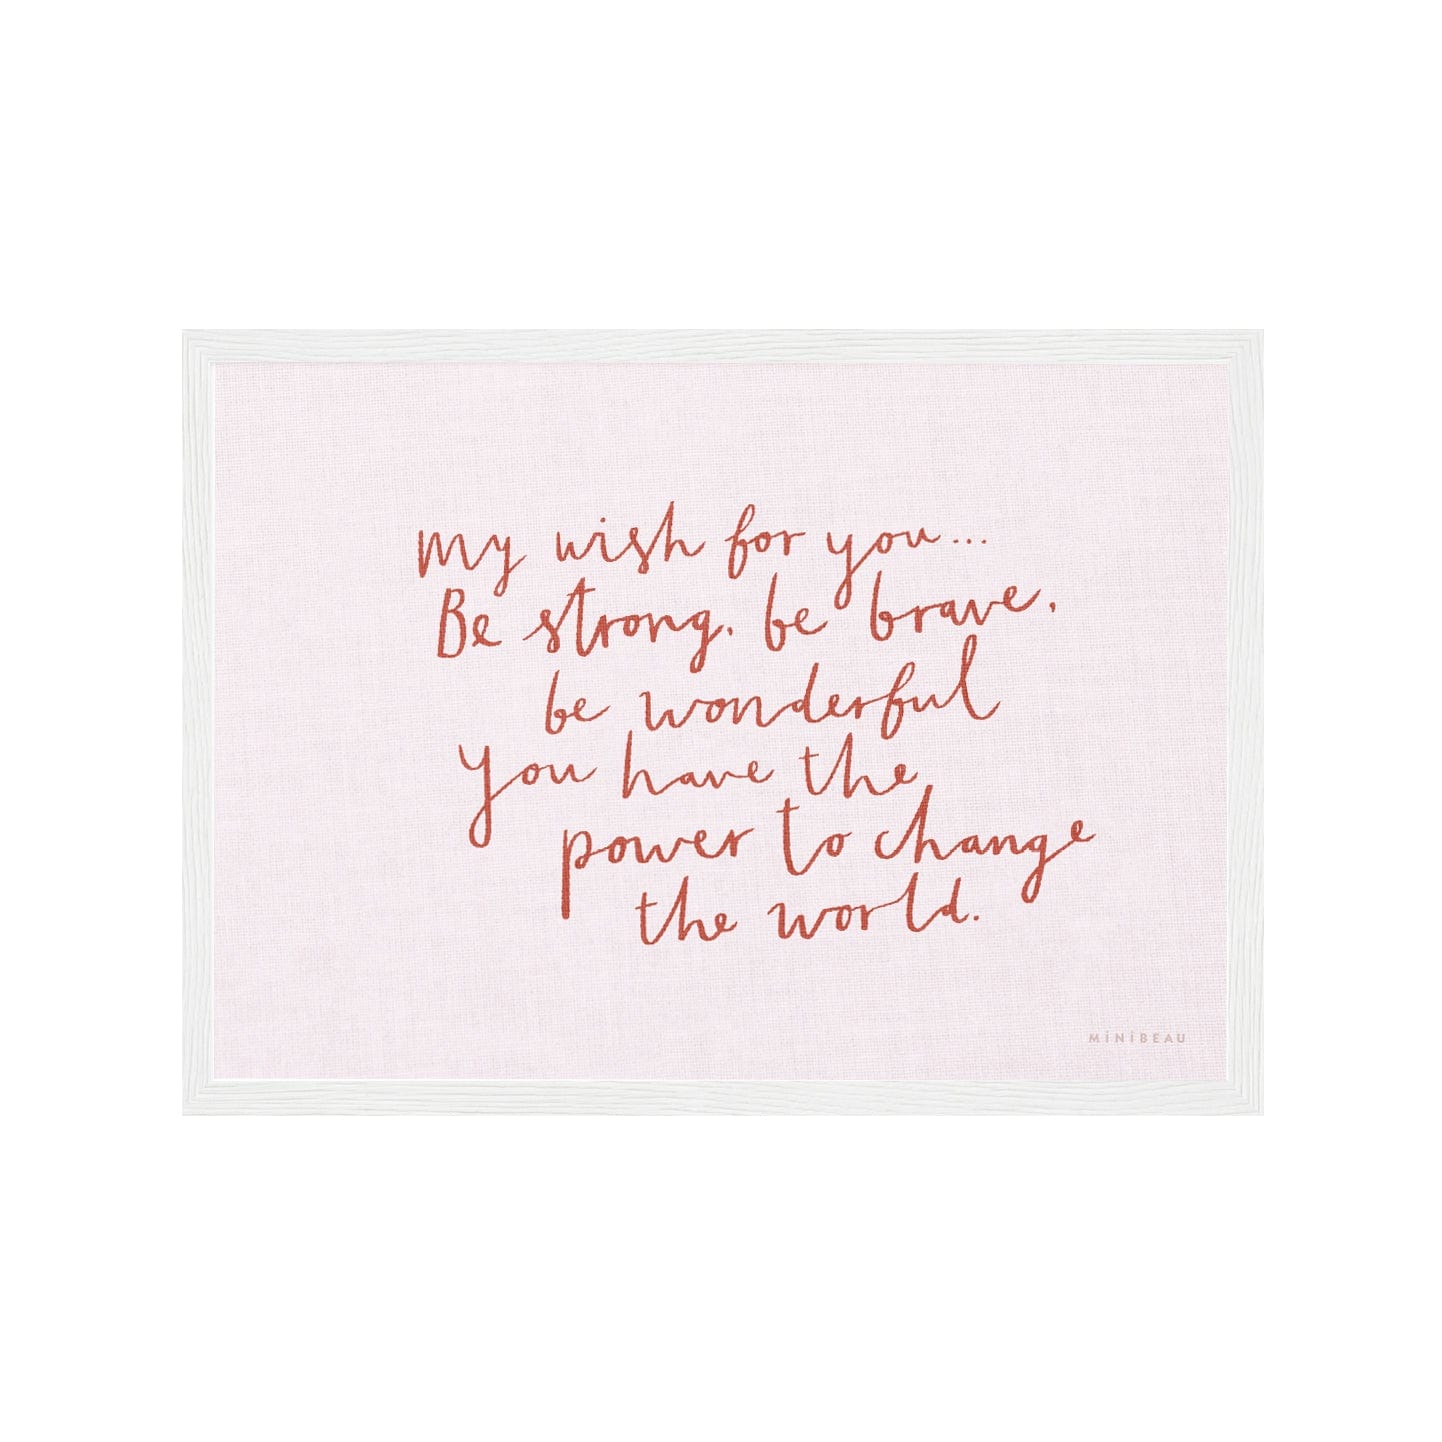 My wish for you...
Be strong, be brave,
be wonderful
You have the
power to change
the world.
MiNiBEAU